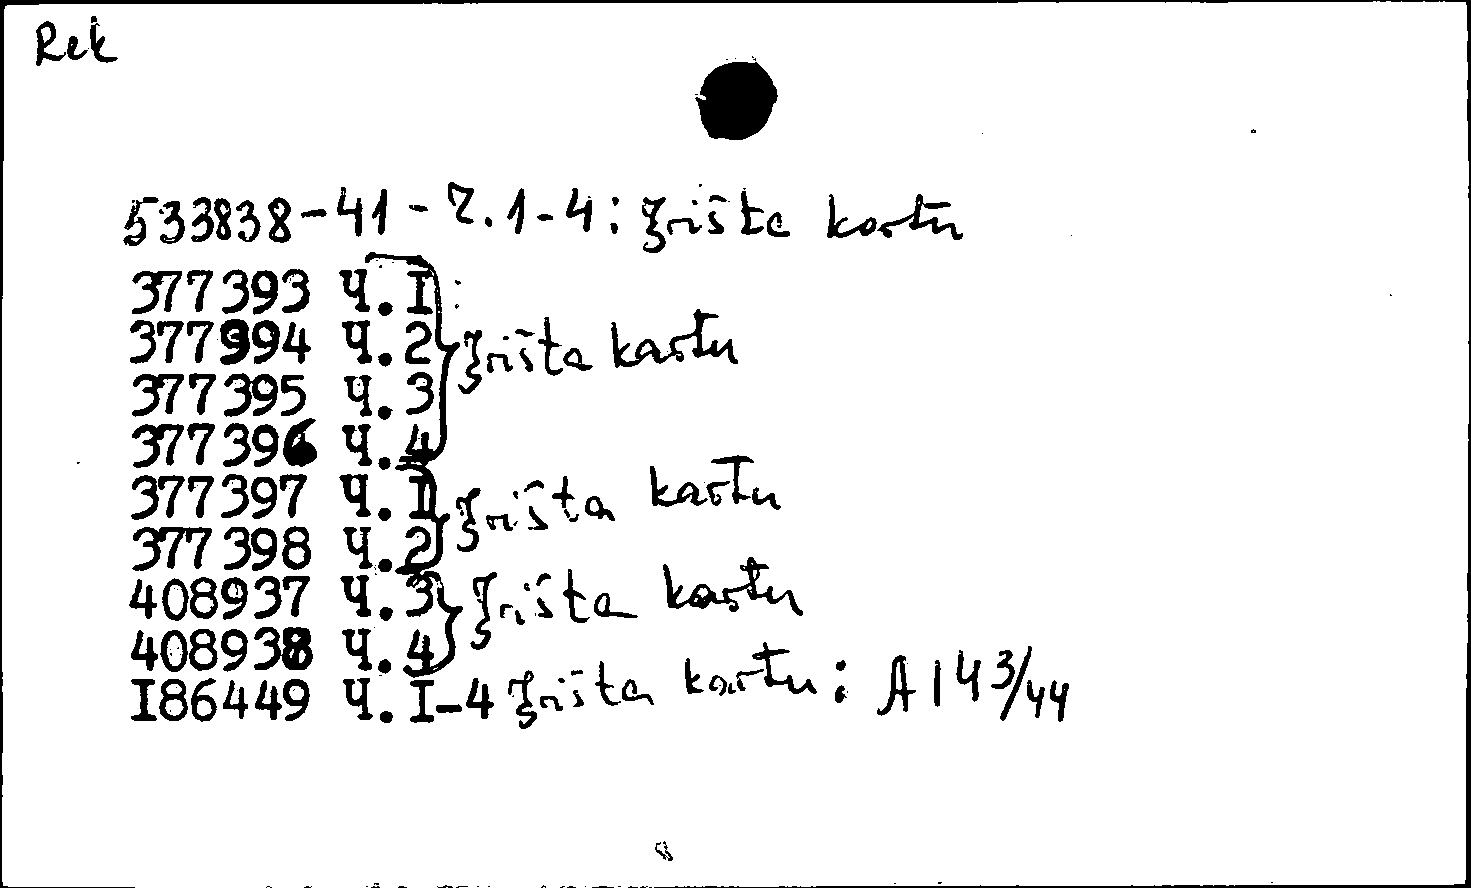 Rek
533838-41 - Ч. 1-4: Įrišta kartu
377393 Ч.I
377394 Ч.2 Įrišta kartu
377395 Ч.3
377396 Ч.4
377397 Ч.I Įrišta kartu
377398 Ч.2
408937 Ч.3 Įrišta kartu
408938 Ч.4
I86449 Ч.I-4 Įrišta kartu: A 143/44